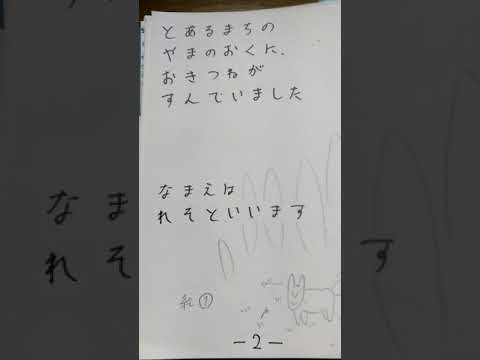 とあるまちの
やまのおくに、
おきつねが
すんでいました
なまえは
れそといいます
－2－